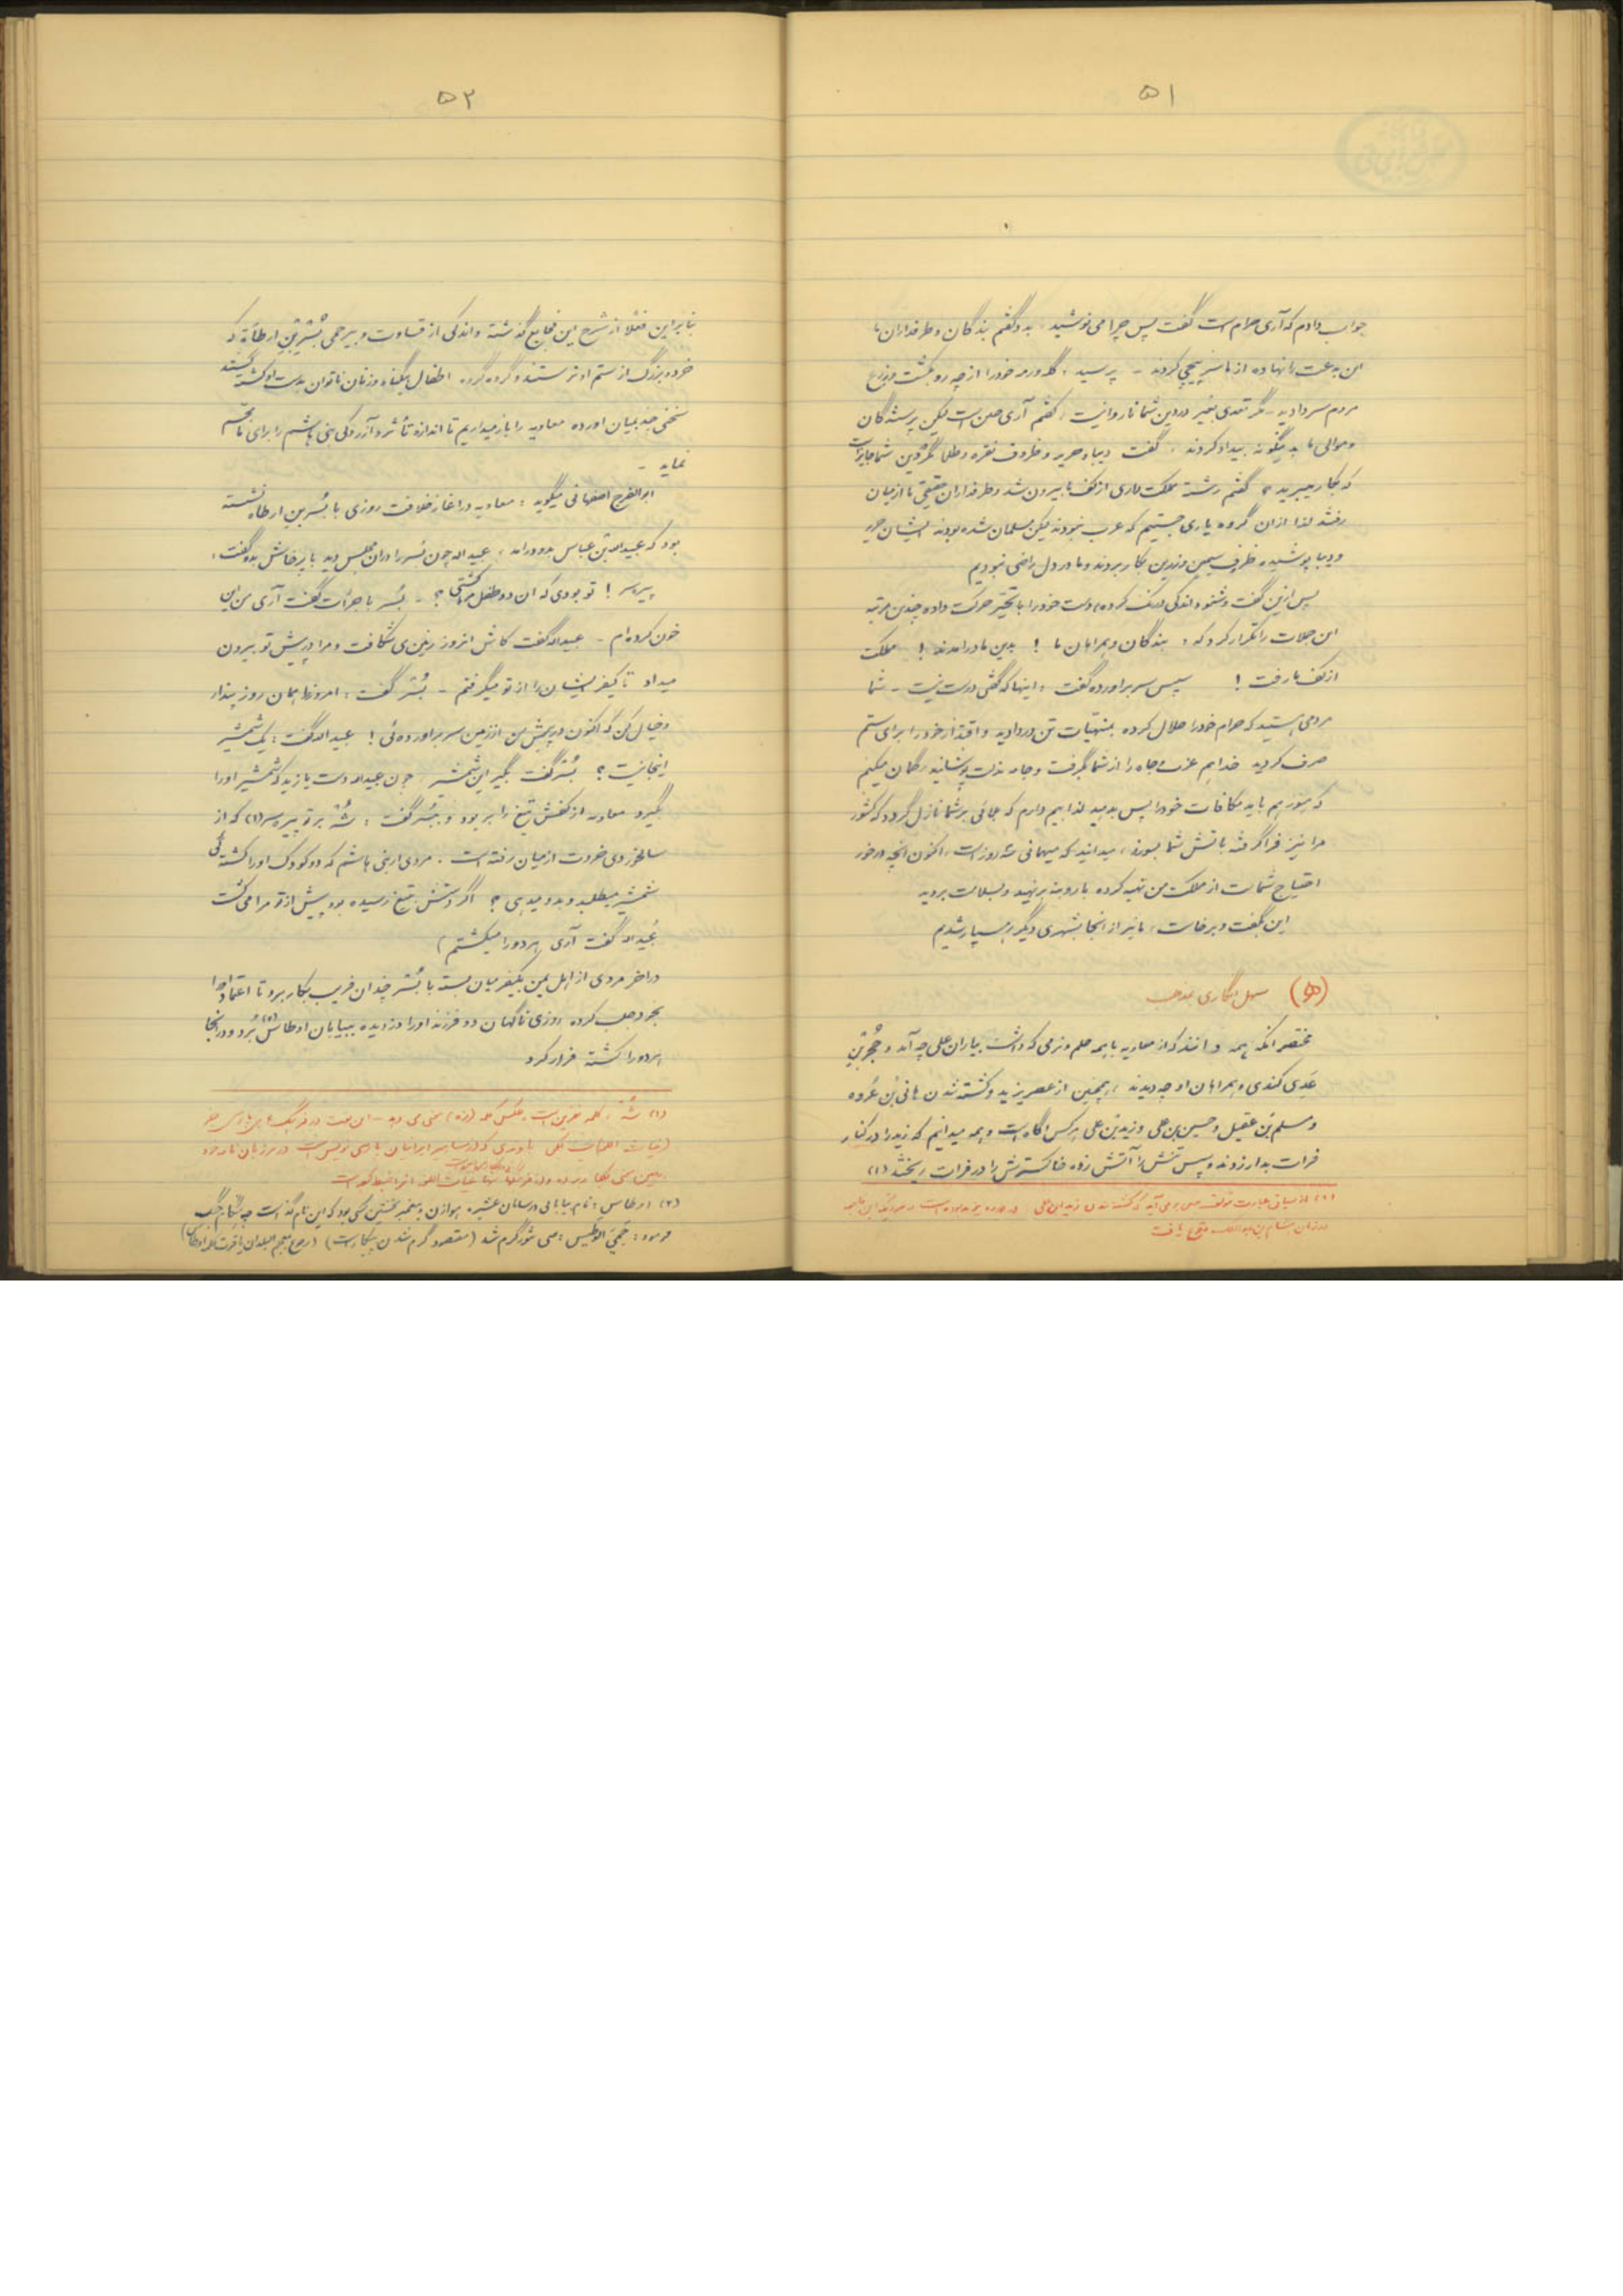 ۵۱
جواب دادم که آری حرام است گفت پس چرا می نوشید، بدو گفتم بندگان و طرفداران ما
این بدعت را نهاده از ما سرپیچی کردند - پرسید، گله و رمه خود را از چه رو بکشت و زرع
مردم سر دادید - مگر تعدی بغیر در دین شما ناروا نیست، گفتم آری چنین است لیکن پرستندگان
و موالی ما بدینگونه بیداد کردند، گفت دیبا و حریر و ظروف نقره و طلا مگر در دین شما جایز است
که بکار میبرید؟ گفتم رشته مملکت داری از کف ما بیرون شد و طرفداران حقیقی ما از میان
رفتند لذا از آن گروه یاری جستیم که عرب نبودند لیکن مسلمان شده بودند ایشان حریر
و دیبا پوشیده ظرف سیمین و زرین بکار بردند و ما در دل راضی نبودیم
پس ازین گفت و شنود اندکی درنگ کرده، دست خود را با تحیر حرکت داده چندین مرتبه
این جملات را تکرار کرد که، بندگان و همراهان ما ! بدین ما درامدند ! مملکت
از کف ما رفت ! سپس سر براورده گفت، اینها که گفتی درست نیست - شما
مردمی هستید که حرام خود را حلال کرده بمنهیات تن در دادید و اقتدار خود را برای ستم
صرف کردید خدا هم عزت و جاه را از شما گرفت و جامه مذلت پوشانید، گمان میکنم
که هنوز هم باید مکافات خود را پس بدهید لذا بیم دارم که بلائی بر شما نازل گردد که کشور
مرا نیز فرا گرفته باتش شما بسوزد، میدانید که میهمانی سه روز است، اکنون انچه در خور
احتیاج شماست از مملکت من تهیه کرده بار و بنه بر نهید و بسلامت بروید
این بگفت و برخاست، ما نیز از انجا بشهری دیگر رهسپار شدیم
(۵) سهل انگاری مذهب
مختصر انکه همه دانند که از معاویه با همه حلم و نرمی که داشت بیاران علی چه آمد و حُجْر بْنِ
عَدِی کندی و همراهان او چه دیدند، همچنین از عصر یزید و کشته شدن هانی بْن عُروه
و مسلم بْن عقیل و حسین بن علی و زید بْن علی هر کس آگاه است و همه میدانیم که زید را در کنار
فرات بدار زدند و سپس تنش را آتش زده خاکسترش را در فرات ریختند (۱)
(۱) از سیاق عبارت مولف چنین بر می آید که کشته شدن زید ابن علی در دوره یزید بوده است در صورتیکه این واقعه
در زمان هشام بن عبدالملک وقوع یافت
۵۲
بنابراین فعلاً از شرح این فجایع گذشته و اندکی از قساوت و بیرحمی بُسْر بْنِ ارطاَة که
خرد و بزرگ از ستم او نرستند و گروه گروه اطفال بیگناه و زنان ناتوان بدست او کشته گشتند
سخنی چند بمیان اورده معاویه را باز میداریم تا اندازه تأثر و آزردگی بنی هاشم را برای ما مجسم
نماید -
ابوالفرج اصفهانی میگوید : معاویه در اغاز خلافت روزی با بُسْر بن ارطاه نشسته
بود که عبیدالله بْن عباس بدو درامد، عبیدالله چون بُسر را در ان مجلس دید با پرخاش بدو گفت،
پیره سر ! تو بودی که ان دو طفل مرا کشتی ؟ - بُسر با جرأت گفت آری من این
خون کرده ام - عبیدالله گفت کاش امروز زمین می شکافت و مرا در پیش تو بیرون
میداد تا کیفر ایشان را از تو میگرفتم - بُسْر گفت : امروز را همان روز پندار
و خیال کن که اکنون در پیش من از زمین سر براورده ئی ! عبیدالله گفت : یک شمشیر
اینجا نیست ؟ بُسْر گفت بگیر این شمشیر، چون عبیدالله دست یازید که شمشیر او را
بگیرد معاویه از کفش تیغ را بر بود و ببُسر گفت : شُهْ بر تو پیره سر (۱) که از
سالخوردی خردت از میان رفته است . مردی از بنی هاشم که دو کودک او را کشته ئی
شمشیر میطلبد و بدو میدهی ؟ اگر دستش بتیغ رسیده بود پیش از تو مرا می کشت
عُبیدالله گفت آری هر دو را میکشتم)
در اخر مردی از اهل یمن بکیفر میان بسته با بُسْر چندان فریب بکار برد تا اعتماد او را
بخود جلب کرده روزی ناگهان دو فرزند او را دزدیده ببیابان اوطاس (۲) بُرد و در انجا
هر دو را کشته فرار کرد
(۱) شُه ، کلمه نفرین است و عکس کلمه (زه) معنی می دهد - این لغت در فرهنگ های پارسی
(۲) اوطاس : نام بیابانی در سامان عشیره هوازن و پیغمبر نخستین کسی بود که این نام گذاشت چه هنگام جنگ
فرمود : حَمِیَ الوَطِیس : یعنی تنور گرم شد (مقصود گرم شدن پیکار است) (رجوع بمعجم البلدان یاقوت کلمه اوطاس)